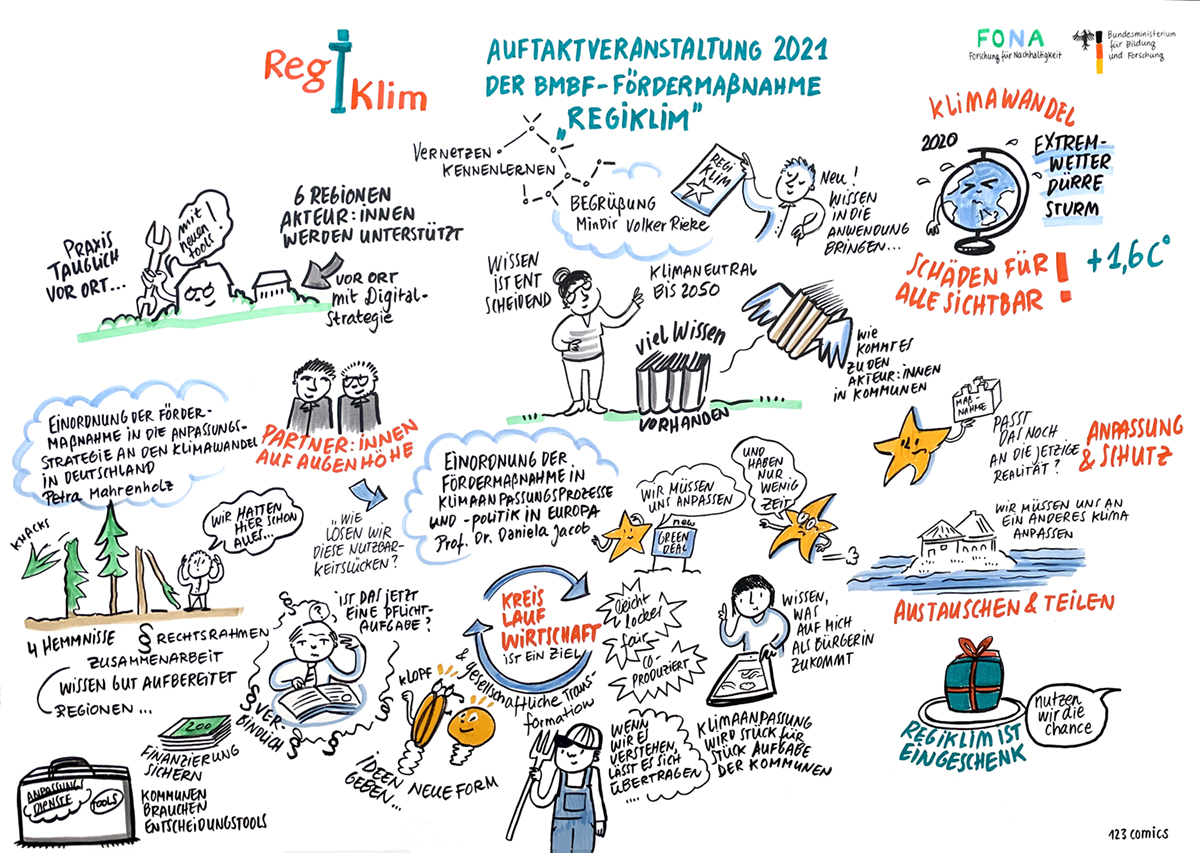 RegiKlim
AUFTAKTVERANSTALTUNG 2021
DER BMBF-FÖRDERMAẞNAHME
„REGIKLIM"
FONA
Forschung für Nachhaltigkeit
Bundesministerium
für Bildung
und Forschung
VERNETZEN
KENNENLERNEN
BEGRÜẞUNG
MinDir Volker Rieke
REGI
KLIM
NEU!
WISSEN
IN DIE
ANWENDUNG
BRINGEN...
KLIMAWANDEL
2020
EXTREM-
WETTER
DÜRRE
STURM
SCHÄDEN FÜR
ALLE SICHTBAR!
+1,6C°
PRAXIS
TAUGLICH
VOR ORT...
mit
neuen
tools!
6 REGIONEN
AKTEUR:INNEN
WERDEN UNTERSTÜTZT
VOR ORT
mit Digital-
Strategie
WISSEN
IST ENT
SCHEIDEND
KLIMANEUTRAL
BIS 2050
viel Wissen
VORHANDEN
WIE
KOMMT ES
ZU DEN
AKTEUR:INNEN
IN KOMMUNEN
EINORDNUNG DER FÖRDER-
MAẞNAHME IN DIE ANPASSUNGS-
STRATEGIE AN DEN KLIMAWANDEL
IN DEUTSCHLAND
Petra Mahrenholz
PARTNER:INNEN
AUF AUGENHÖHE
„WIE
LÖSEN WIR
DIESE NUTZBAR-
KEITSLÜCKEN?
EINORDNUNG DER
FÖRDERMAẞNAHME IN
KLIMAANPASSUNGSPROZESSE
UND -POLITIK IN EUROPA
Prof. Dr. Daniela Jacob
WIR MÜSSEN
UNS ANPASSEN
new
GREEN
DEAL
UND
HABEN
NUR
WENIG
ZEIT
MAẞ-
NAHME
PASST
DAS NOCH
AN DIE JETZIGE
REALITÄT?
ANPASSUNG
& SCHUTZ
WIR MÜSSEN UNS AN
EIN ANDERES KLIMA
ANPASSEN
AUSTAUSCHEN & TEILEN
KNACKS
WIR HATTEN
HIER SCHON
ALLES...
4 HEMMNISSE
§ RECHTSRAHMEN
ZUSAMMENARBEIT
WISSEN GUT AUFBEREITET
REGIONEN...
?
IST DAS JETZT
EINE PFLICHT-
AUFGABE?
§ VER
BINDLICH
§
§
§
KREIS
LAUF
WIRTSCHAFT
IST EIN ZIEL
& gesellschaftliche Trans-
formation
leicht
locker
fair
CO-
PRODUZIERT
WISSEN,
WAS
AUF MICH
ALS BÜRGERIN
ZUKOMMT
KLIMAANPASSUNG
WIRD STÜCK FÜR
STÜCK AUFGABE
DER KOMMUNEN
KLOPF
IDEEN NEUE FORM
GEBEN...
WENN
WIR ES
VERSTEHEN,
LÄSST ES SICH
ÜBERTRAGEN
200
FINANZIERUNG
SICHERN
ANPASSUNGS
DIENSTE
TOOLS
KOMMUNEN
BRAUCHEN
ENTSCHEIDUNGSTOOLS
REGIKLIM IST
EINGESCHENK
nutzen
wir die
chance
123 comics